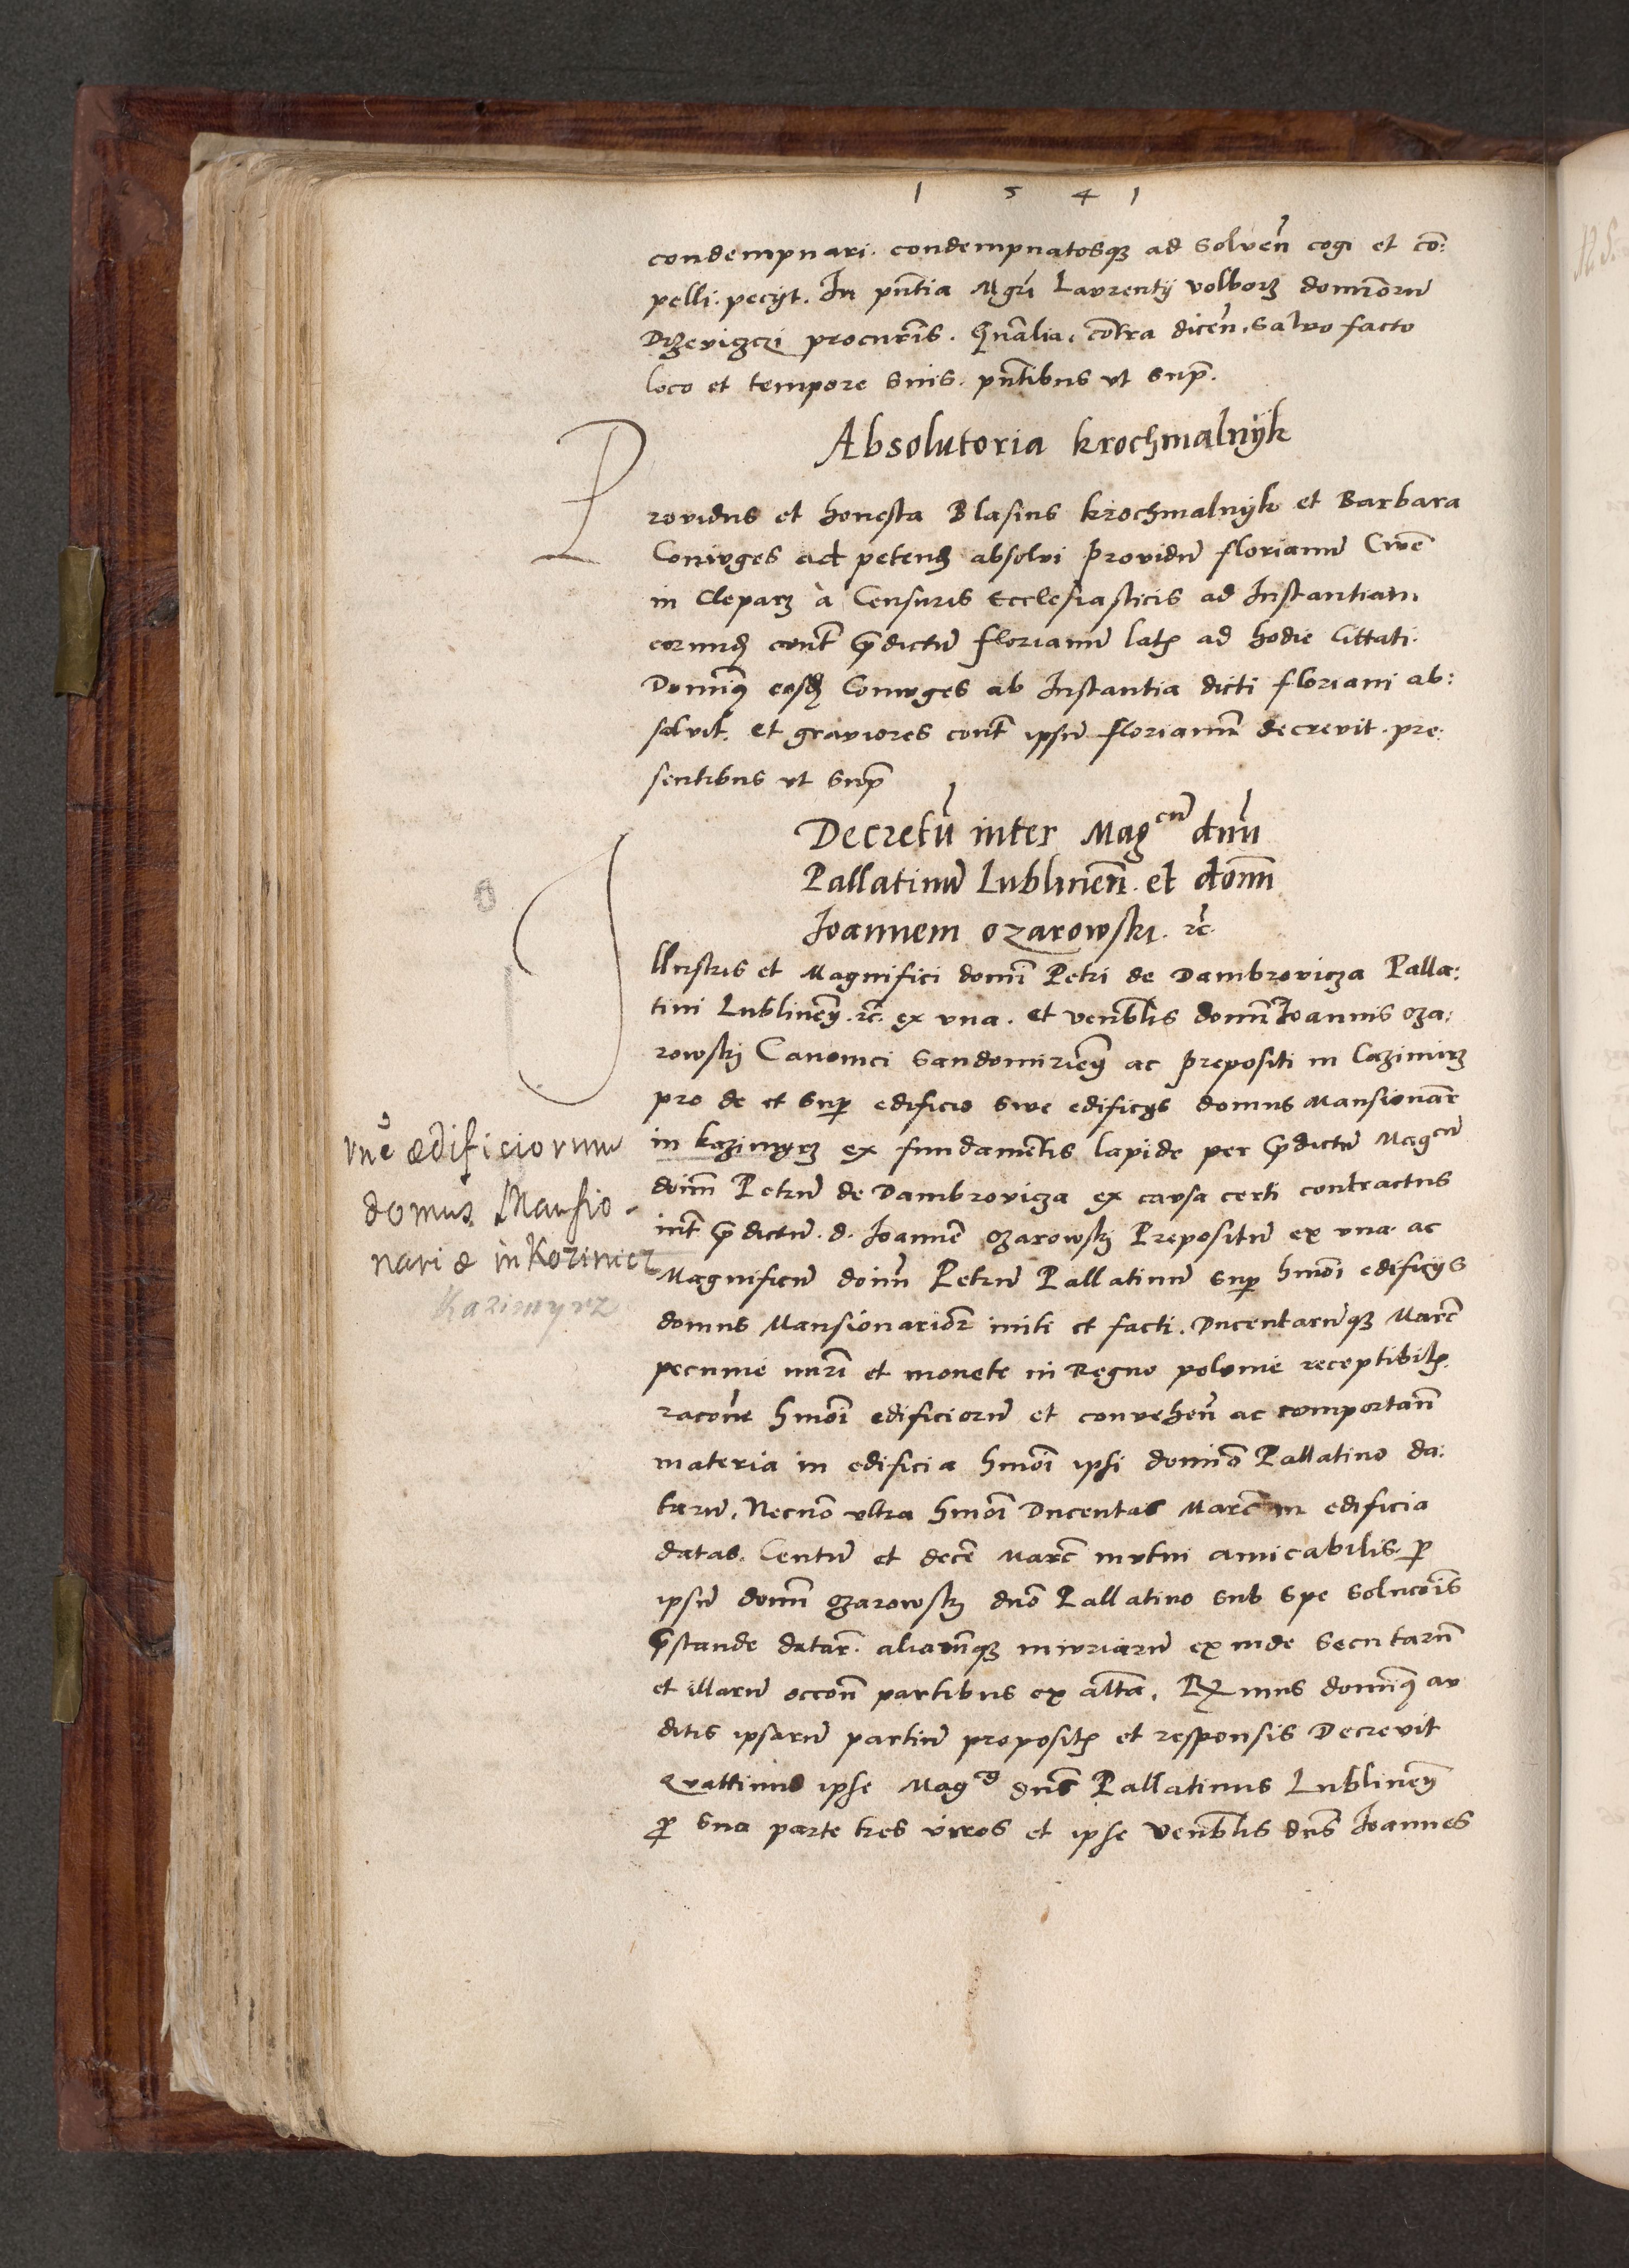 1 5 4 1
condempnari. condempnatosqꝫ ad solven̄ cogi et co͞:
pelli. pecyt. In pn̄tia Mgri Laurentij volborz dominorū
Drzeviczczi procur̄is. Gn̄alia. cōtra dicen̄. salvo facto
loco et tempore suis. pn̄tibus vt sup̄.
Absolutoria krochmalnÿk
Providus et honesta Blasius krochmalnÿk et Barbara
Coniuges ad petenꝝ absolvi providū florianū Civē
in Cleparz à Censuris Ecclesiasticis ad Instantiam
eorundꝫ cont̄ p̄dictū florianū lat̄ ad hodie Cittati.
Dominꝰ eosdꝫ Coniuges ab Instantia dicti floriani ab:
solvit. et graviores cont̄ ipsū florianū decrevit. pre:
sentibus vt sup̄
Decretū inter Magᶜū dnū
Pallatinū Lublinen̄. et dōm̄
Joannem ozarowski. ꝛc̄.
Illustris et Magnifici domī Petri de Dambrovicza Palla:
tini Lublineñ. ꝛc̄. ex vna. et venˡblis domī Joannis oza:
rowskj Canonici Sandomirieñ ac prepositi in Cazimirz
pro de et sup̄ edificio sive edificijs domus Mansionar̄
in kazimyrz ex fundamētis lapide per p̄dictū Magᶜū
doīm Petrū de Dambrovicza ex causa certi contractus
int̄ p̄dictū. d. Joannē ozarowskj Prepositū ex vna. ac
Magnificū doīm Petrū Pallatinū sup̄ hmōi edificijs
domus Mansionarioꝝ initi et facti. Ducentarūqꝫ Marc̄
pecunie nūri et monete in Regno polonie receptibil̄.
racōne hmōi edificiorū et convehen̄ ac comportan̄
materia in edificia hmōi ipsi dominō Pallatino da:
tarū. Necnō vltra hmōi Ducentas Marc̄ in edificia
datas. Centū et decē Marc̄ mutui amicabilis. ꝑ
ipsū domī ozarowskj dnō Pallatino sub spe solucōis
p̄stande datar̄. aliarūqꝫ iniuriarū exinde secutarū
et illarū occōn̄ partibus ex alt̄a. Rx̄mus dominꝰ au
ditis ipsarū partiū proposit̄ et responsis Decrevit
Qvattinus ipse Magᶜꝰ dn̄s Pallatinus Lublineñ
ꝓ sua parte tres viros et ipse venˡblis dn̄s Joannes
rn̄e ædificiorum
domus Mansio-
nariæ in Kozimierz
Kazimyrz